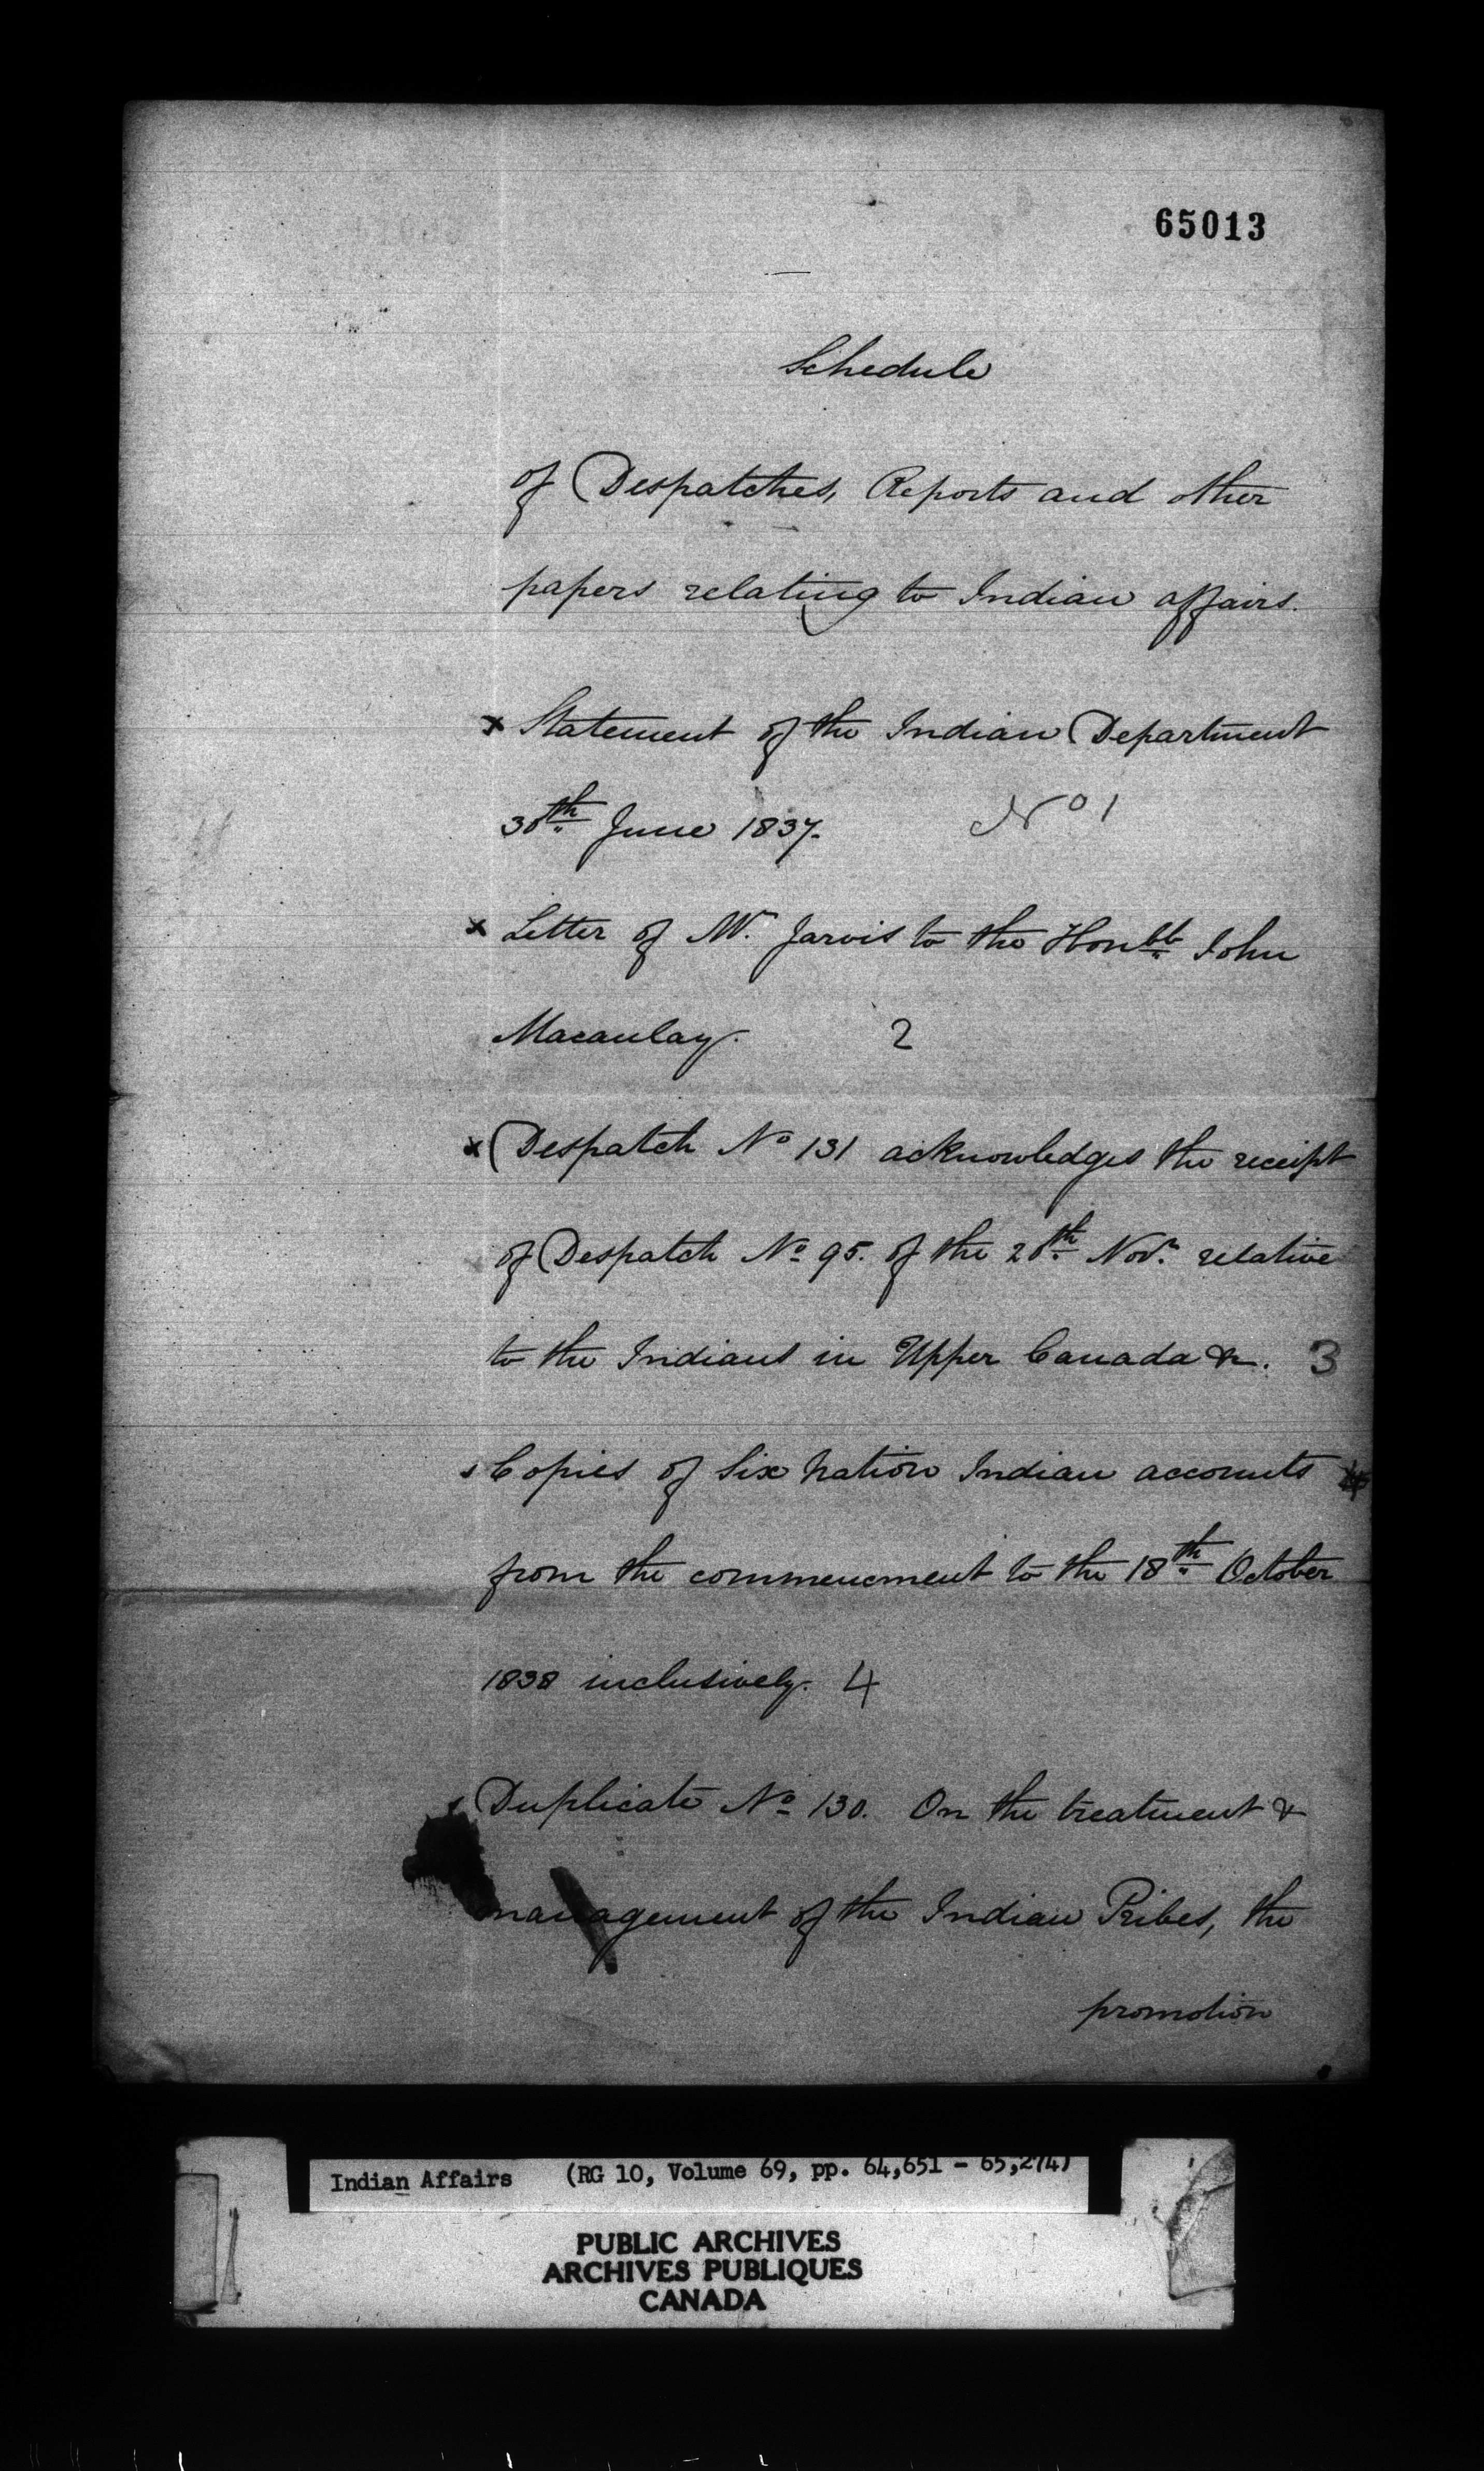 65013
Schedule
of Despatches, Reports and other
papers relating to Indian affairs.
x Statement of the Indian Department
30th June 1837. No 1
x Letter of Mr. Jarvis to the Honble John
Macaulay. 2
x Despatch No 131 acknowledges the receipt
of Despatch No 95. of the 20th Novr. relative
to the Indians in Upper Canada &c. 3
Copies of Six Nation Indian accounts
from the commencment to the 18th October
1838 inclusively. 4
Duplicate No 130. On the treatment &
management of the Indian Tribes, the
promotion
Indian Affairs (RG 10, Volume 69, pp. 64,651 - 65,274)
PUBLIC ARCHIVES
ARCHIVES PUBLIQUES
CANADA